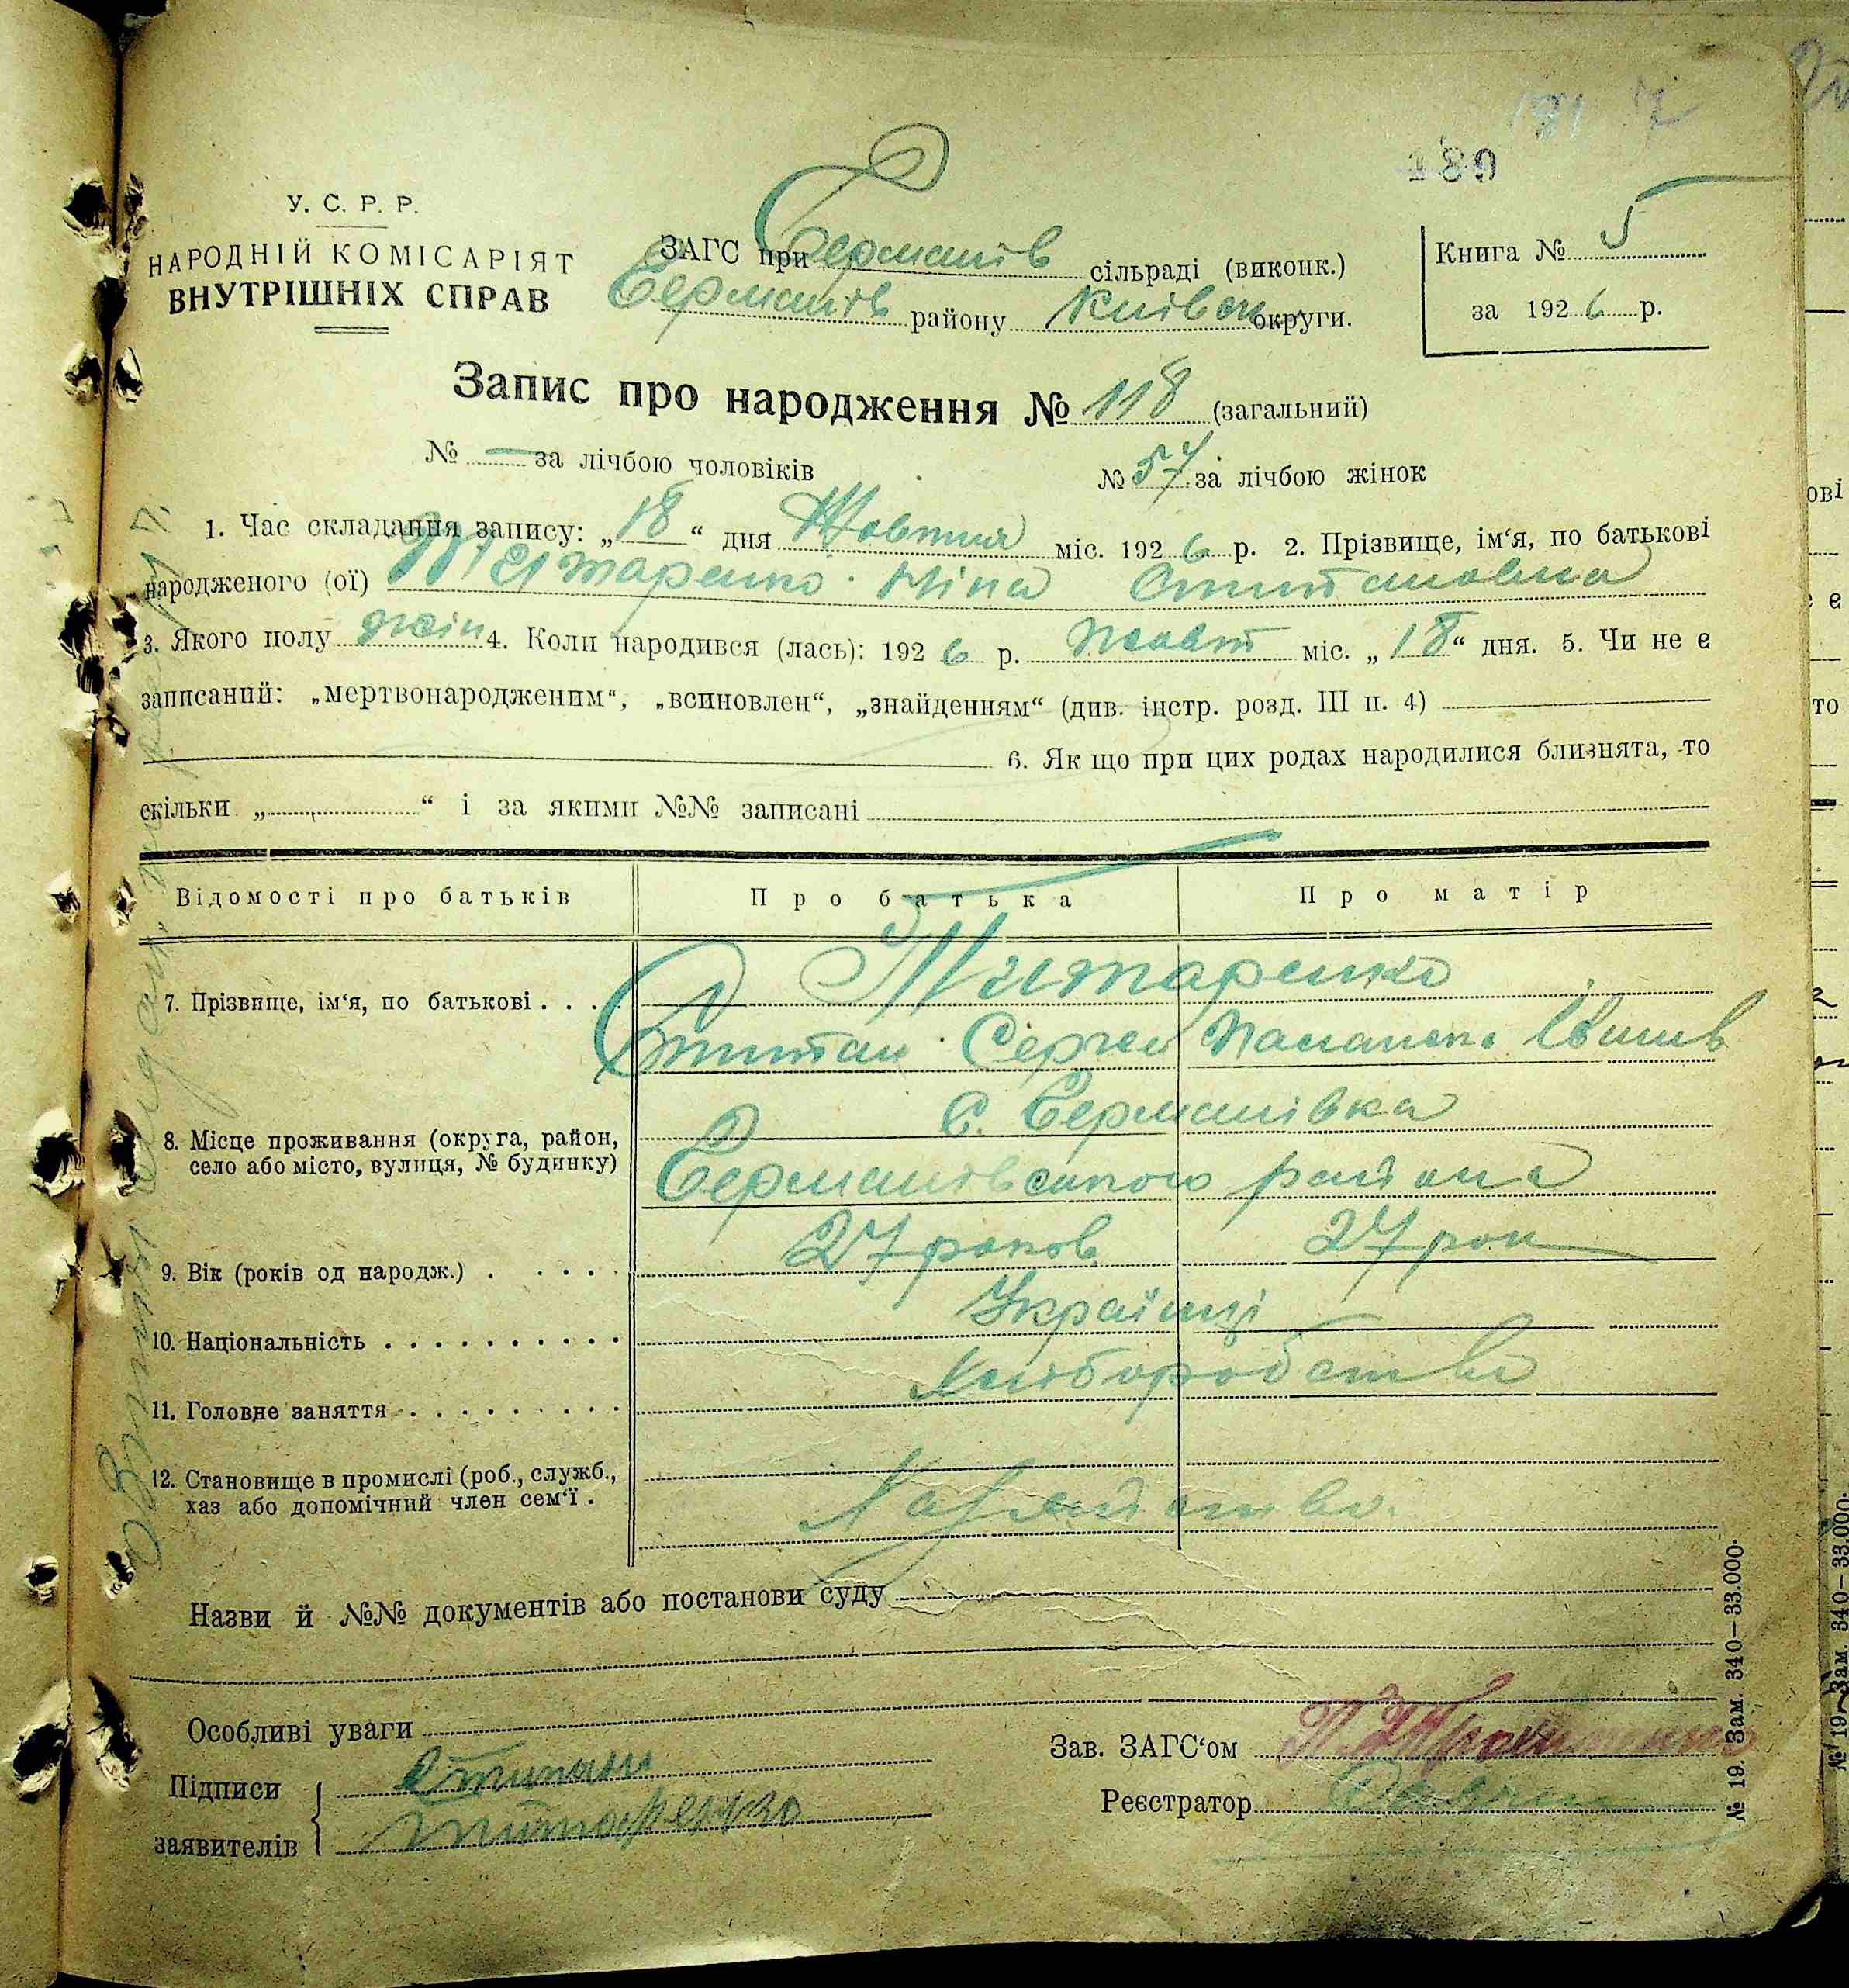 180
У. С. Р. Р.
НАРОДНІЙ КОМІСАРІЯТ
ВНУТРІШНІХ СПРАВ
ЗАГС при Германів сільраді (виконк.)
Германів району Київськ округи.
Книга № 5
за 1926 р.
Запис про народження № 118 (загальний)
№ — за лічбою чоловіків № 57 за лічбою жінок
1. Час складання запису: „18“ дня Жовтня міс. 1926 р. 2. Прізвище, ім‘я, по батькові
народженого (ої) Титаренко Ніна
3. Якого полу жін 4. Коли народився (лась): 1926 р. Жовт міс. „18“ дня. 5. Чи не є
записаний: „мертвонародженим“, „всиновлен“, „знайденням“ (див. інстр. розд. III п. 4)
6. Як що при цих родах народилися близнята, то
скільки „ “ і за якими №№ записані
Відомості про батьків Про батька Про матір
7. Прізвище, ім‘я, по батькові . . . . Титаренко
Сергей
8. Місце проживання (округа, район, село або місто, вулиця, № будинку) С. Германівка
Германівського района
9. Вік (років од народж.) . . . . . 27 роков 27 рок
10. Національність . . . . . . . . . . Українці
11. Головне заняття . . . . . . . . . Хліборобство
12. Становище в промислі (роб., служб.,
хаз або допомічний член сем‘ї .
Назви й №№ документів або постанови суду
Особливі уваги
Підписи
заявителів
Титаренко
Зав. ЗАГС‘ом
Реєстратор
№ 19. Зам. 340—33.000.
№ 19. Зам. 340—33.000.